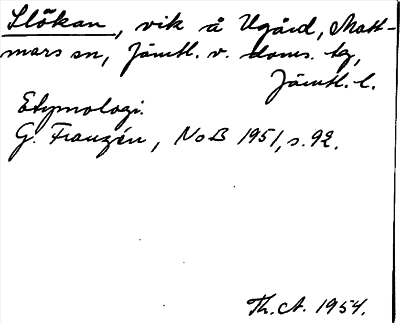 Slökan, vik å Ugård, Matt-
mars sn, Jämtl. v. doms. tg,
Jämtl. l.
Etymologi.
G. Franzén, NoB 1951, s. 92.
Th. A. 1954.